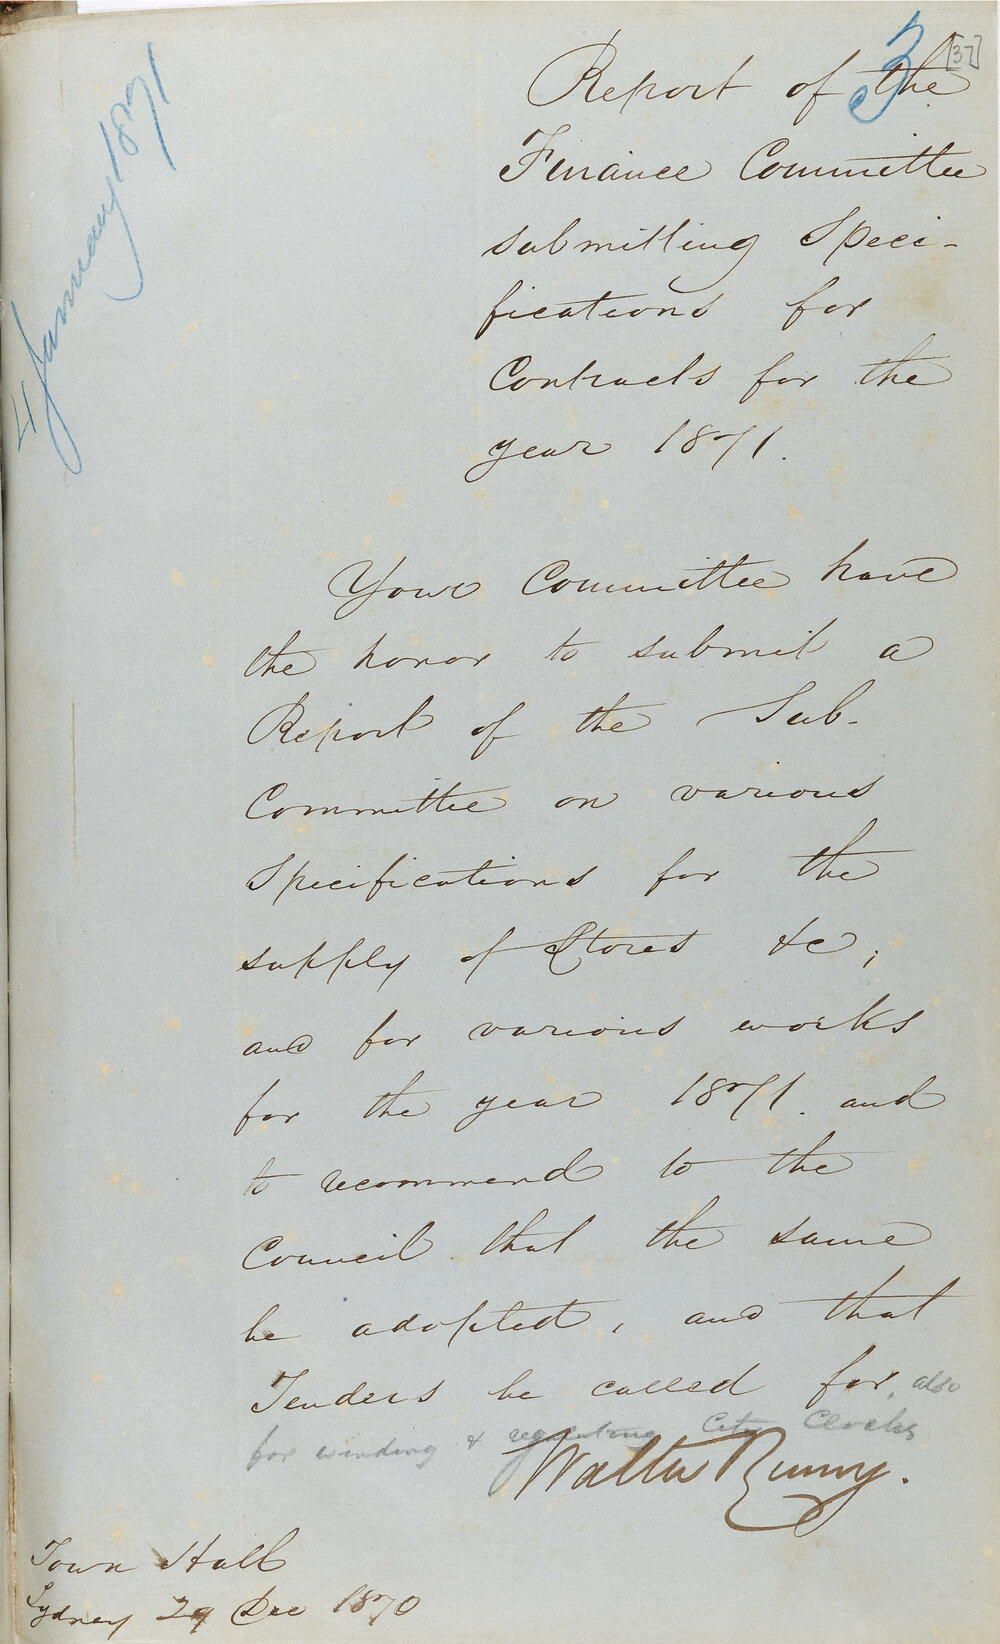 3 [37]
4 January 1871
Report of the
Finance Committee
submitting Speci-
fications for
Contracts for the
year 1871.
Your Committee have
the honor to submit a
Report of the Sub-
Committee on various
Specifications for the
supply of Stores &c;
and for various works
for the year 1871. and
to recommend to the
Council that the same
be adopted, and that
Tenders be called for, also
for winding & regulating City Clocks
Walter Renny.
Town Hall
Sydney 29 Dec 1870